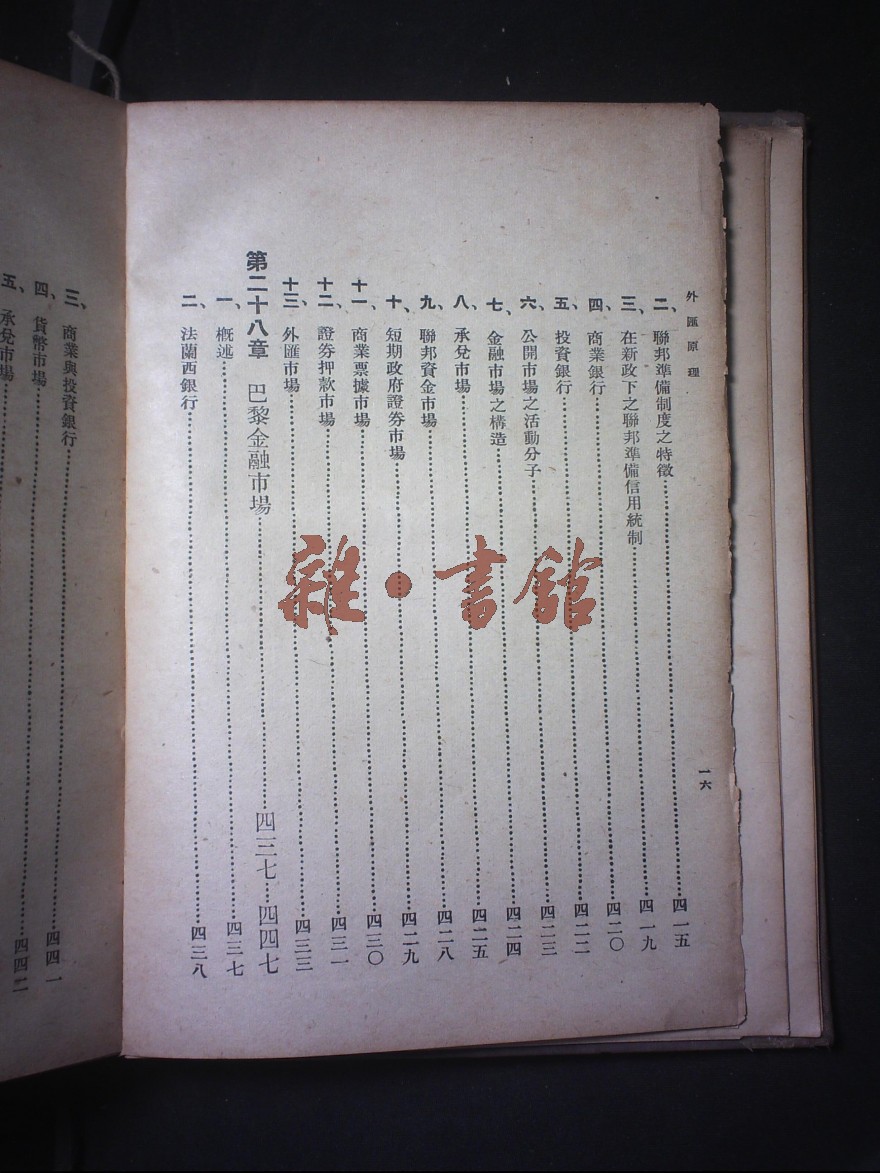 外匯原理
一六
二、聯邦準備制度之特徵……四一五
三、在新政下之聯邦準備信用統制……四一九
四、商業銀行……四二〇
五、投資銀行……四二二
六、公開市場之活動分子……四二三
七、金融市場之構造……四二四
八、承兌市場……四二五
九、聯邦資金市場……四二八
十、短期政府證券市場……四二九
十一、商業票據市場……四三〇
十二、證券押款市場……四三一
十三、外匯市場……四三三
第二十八章 巴黎金融市場……四三七…四四七
一、概述……四三七
二、法蘭西銀行……四三八
三、商業與投資銀行
四、貨幣市場……四四一
五、承兌市場……四四二
雜・書館